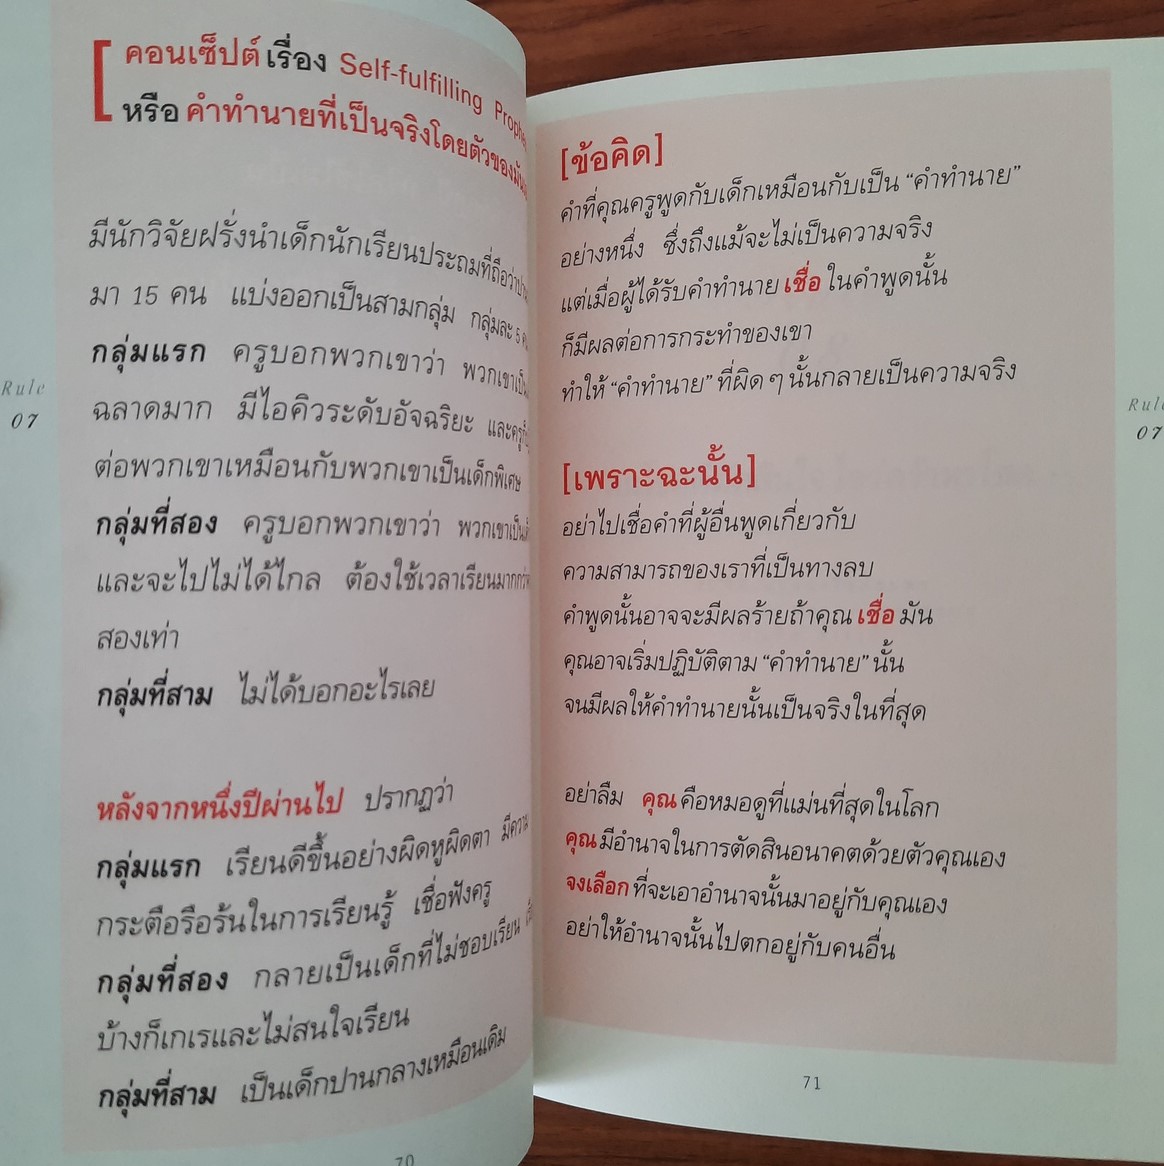 [คอนเซ็ปต์เรื่อง Self-fulfilling
หรือ คำทำนายที่เป็นจริงโดยตัวของมัน
มีนักวิจัยฝรั่งนำเด็กนักเรียนประถมที่ถือว่า
มา 15 คน แบ่งออกเป็นสามกลุ่ม กลุ่มละ 5
กลุ่มแรก ครูบอกพวกเขาว่า พวกเขาเป็น
ฉลาดมาก มีไอคิวระดับอัจฉริยะ
ต่อพวกเขาเหมือนกับพวกเขาเป็นเด็กพิเศษ
กลุ่มที่สอง ครูบอกพวกเขาว่า พวกเขาเป็น
และจะไปไม่ได้ไกล ต้องใช้เวลาเรียนมากกว่า
สองเท่า
กลุ่มที่สาม ไม่ได้บอกอะไรเลย
หลังจากหนึ่งปีผ่านไป ปรากฏว่า
กลุ่มแรก เรียนดีขึ้นอย่างผิดหูผิดตา มีความ
กระตือรือร้นในการเรียนรู้ เชื่อฟังครู
กลุ่มที่สอง กลายเป็นเด็กที่ไม่ชอบเรียน
บ้างก็เกเรและไม่สนใจเรียน
กลุ่มที่สาม เป็นเด็กปานกลางเหมือนเดิม
Rule
07
70
[ข้อคิด]
คำที่คุณครูพูดกับเด็กเหมือนกับเป็น “คำทำนาย”
อย่างหนึ่ง ซึ่งถึงแม้จะไม่เป็นความจริง
แต่เมื่อผู้ได้รับคำทำนาย เชื่อ ในคำพูดนั้น
ก็มีผลต่อการกระทำของเขา
ทำให้ “คำทำนาย” ที่ผิด ๆ นั้นกลายเป็นความจริง
[เพราะฉะนั้น]
อย่าไปเชื่อคำที่ผู้อื่นพูดเกี่ยวกับ
ความสามารถของเราที่เป็นทางลบ
คำพูดนั้นอาจจะมีผลร้ายถ้าคุณ เชื่อ มัน
คุณอาจเริ่มปฏิบัติตาม “คำทำนาย” นั้น
จนมีผลให้คำทำนายนั้นเป็นจริงในที่สุด
อย่าลืม คุณ คือหมอดูที่แม่นที่สุดในโลก
คุณ มีอำนาจในการตัดสินอนาคตด้วยตัวคุณเอง
จงเลือก ที่จะเอาอำนาจนั้นมาอยู่กับคุณเอง
อย่าให้อำนาจนั้นไปตกอยู่กับคนอื่น
Rule
07
71